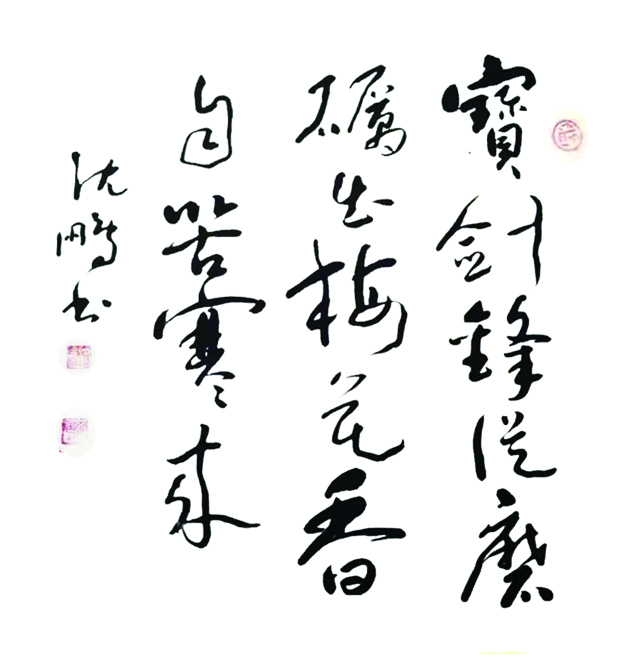 寶劍鋒從磨
礪出梅花香
自苦寒來
沈鵬书